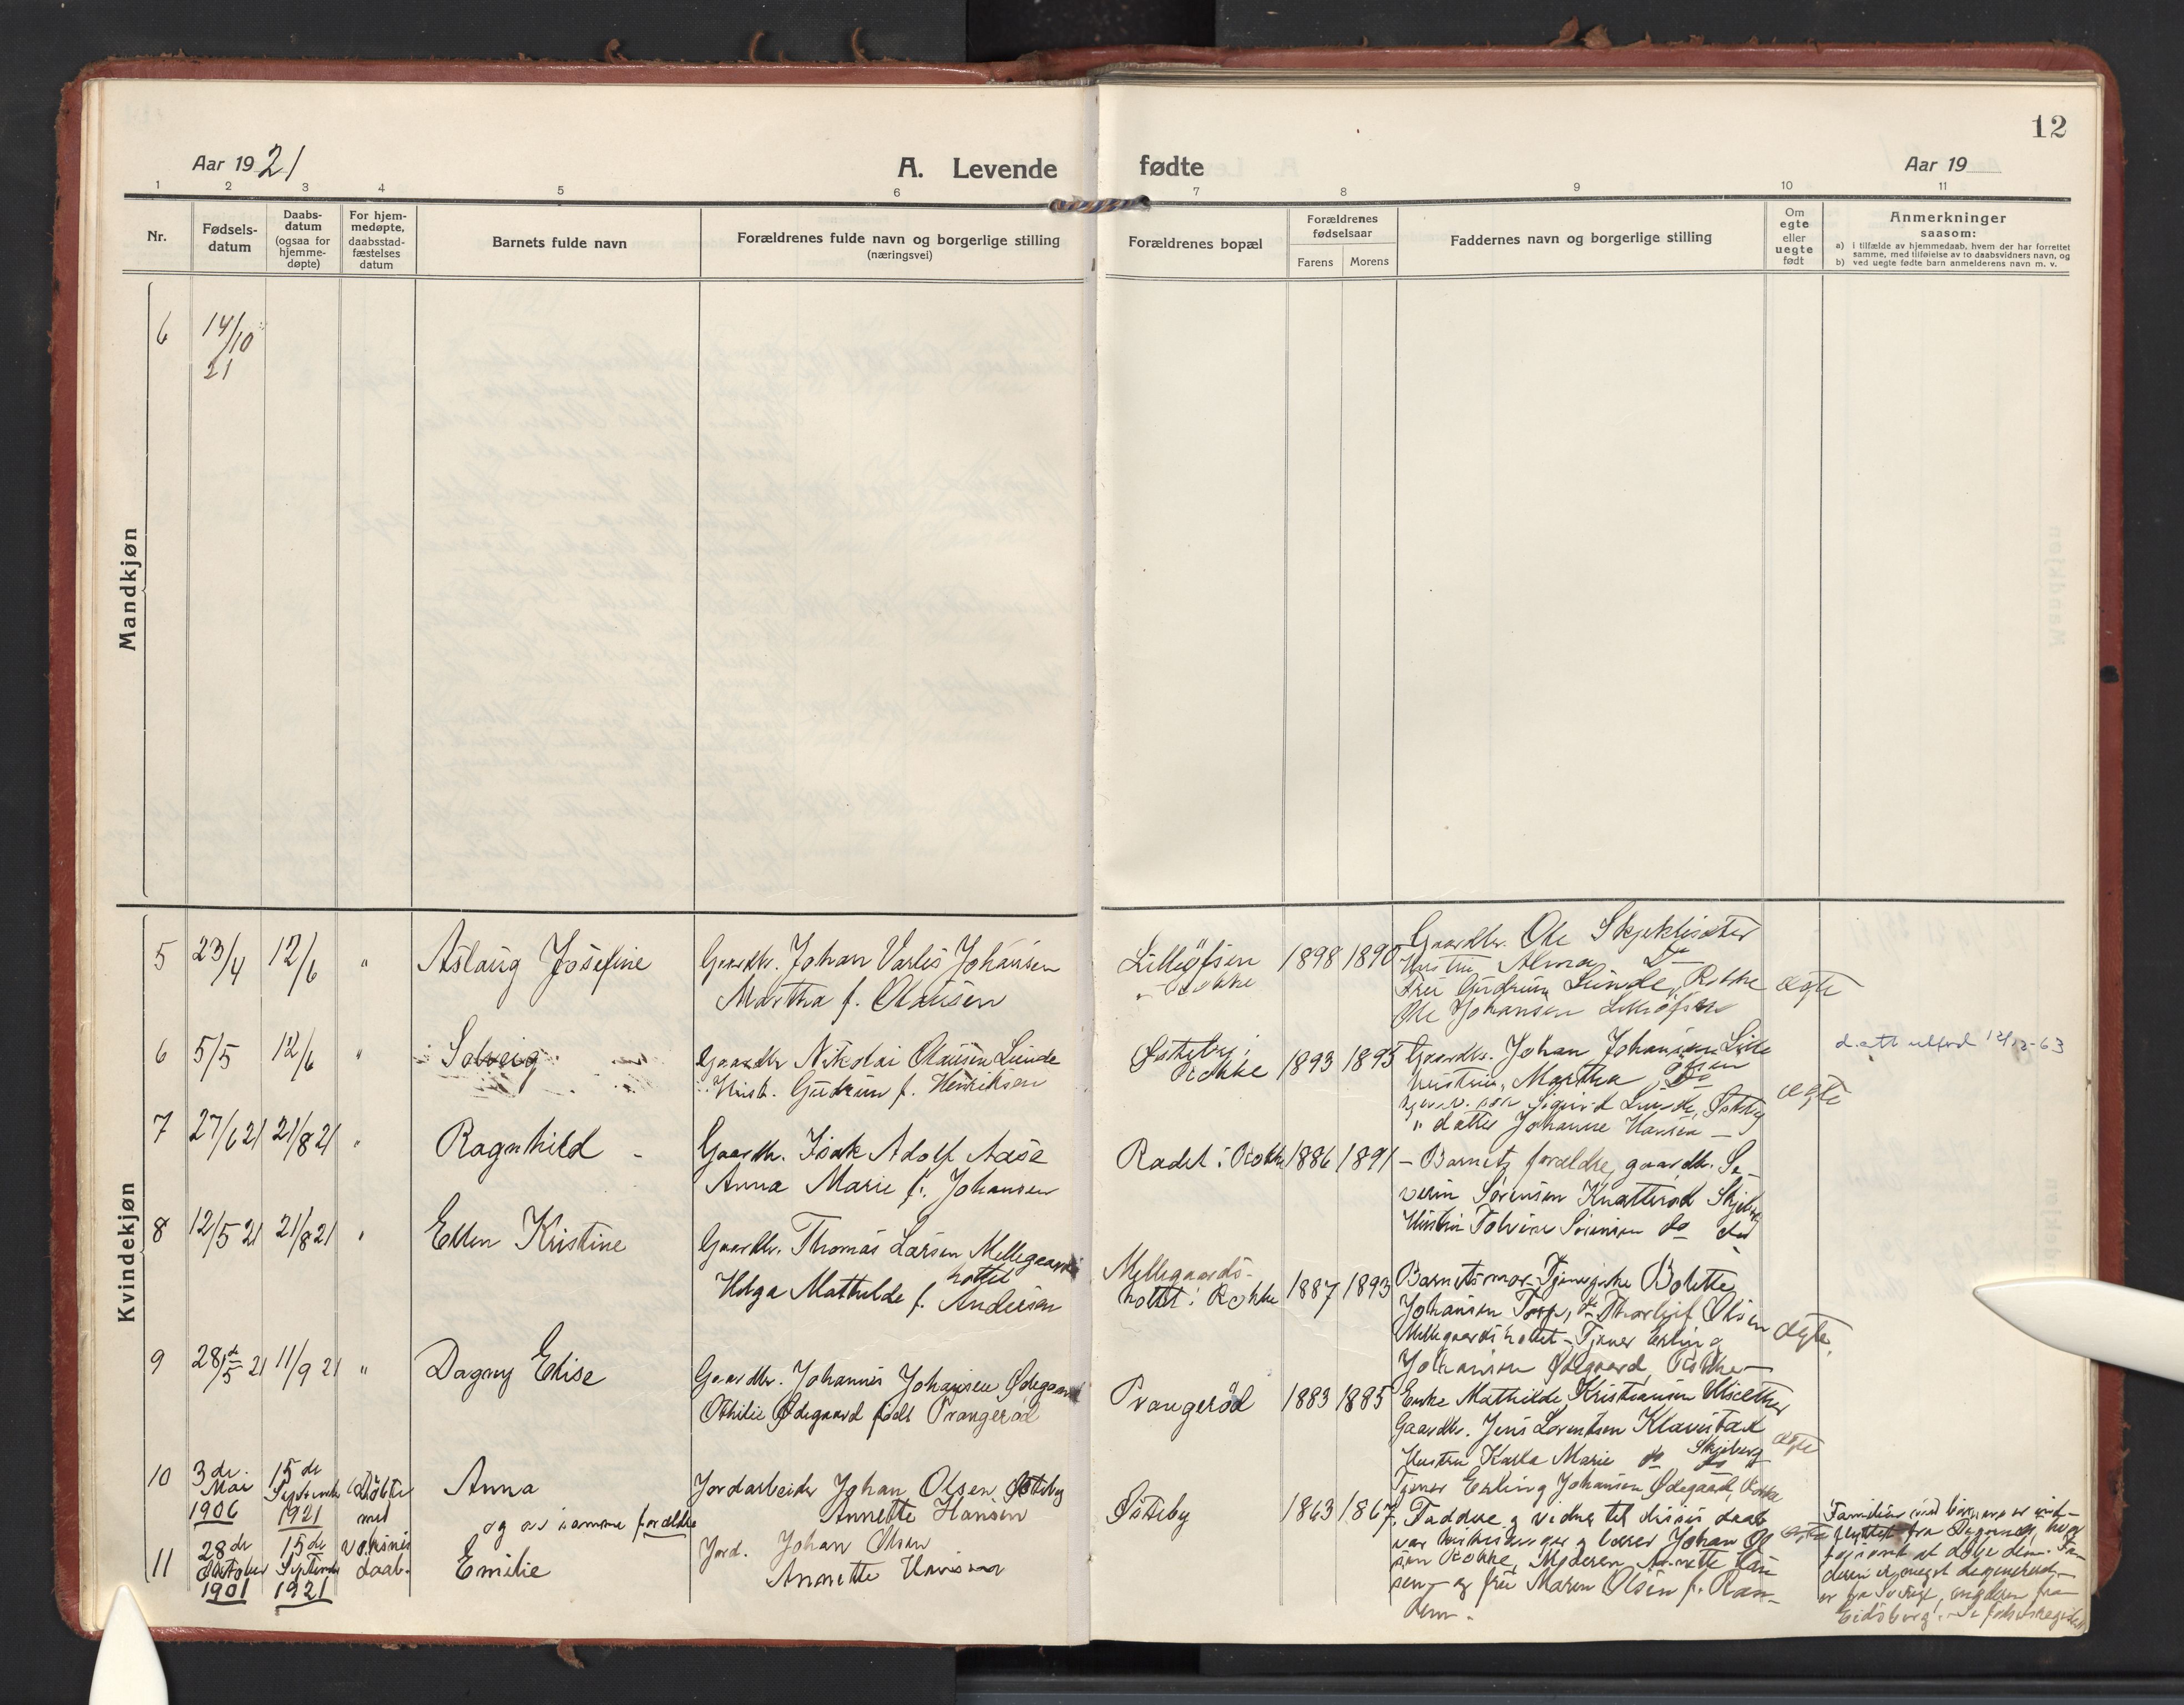 12
Aar 1921
A. Levende fødte
Aar 19
1 2 3 4 5 6 7 8 9 10 11
Nr.
Fødsels-
datum
Daabs-
datum
(ogsaa for
hjemme-
døpte)
For hjem-
medøpte,
daabsstad-
fæstelses
datum
Barnets fulde navn
Forældrenes fulde navn og borgerlige stilling
(næringsvei)
Forældrenes bopæl
Forældrenes
fødselsaar
Farens Morens
Faddernes navn og borgerlige stilling
Om
egte
eller
uegte
født
Anmerkninger
saasom:
a) i tilfælde av hjemmedaab, hvem der har forrettet
samme, med tilføielse av to daabsvidners navn, og
b) ved uegte fødte barn anmelderens navn m. v.
Mandkjøn
6 14/10
21
Kvindekjøn
5 23/4 12/6 " Aslaug Josefine
Gaardbr. Johan Johansen
Martha f. Olausen
Rokke
1898 1890
Gaardbr. Ole
Hustru Alma Do
Gudrun Lunde, Rokke
Ole Johansen
ægte
6 5/5 12/6 " Solveig
Gaardbr Nikolai Olausen Lunde
Hustr. Gudrun f. Henriksen
Østeby i
Rokke
1893 1895
Gaardbr. Johan Johansen Lille
øfsen
Hustru, Martha Do
Sigurd Lunde, Østeby
" datter Johanne Hansen –
ægte
d.att utferd 12/12-63
7 27/6 21 21/8 21 " Ragnhild -
Gaardbr. Isak Adolf Aase
Anna Marie f. Johansen
Radet i Rokke
1886 1891
- Barnets forældre, gaardbr. Se-
verin Sørensen Knatterød Skjeberg
Hustru Sørensen do do
8 12/5 21 21/8 21 " Ellen Kristine
Gaardbr. Thomas Larsen Mellegaards
holtet
Helga Mathilde f. Andersen
Mellegaards-
holtet i Rokke
1887 1893
Barnets mor Tjenepike Bolette
Johansen Torp, Thorleif Olsen
Mellegaardsholtet – Tjener Erling
Johansen Ødegaard, Rokke –
ægte
9 28de/5 21 11/9 21 " Dagny Elise
Gaardbr. Johannes Johansen Ødegaard
Othilie Ødegaard født Prangerød
Prangerød
1883 1885
Enke Mathilde Kristiansen
Gaardbr. Jens Lorentsen Klavestad
Skjeberg
Hustru Karla Marie do do
Tjener Erling Johansen Ødegaard, Rokke
ægte
10 3de
Mai
1906
15de
September
1921
Døbte
med
voksnes
daab.
Anna
og av samme forældre
Jordarbeider Johan Olsen Østeby
Annette Hansen
Østeby
1863 1867
11 28de
Oktober
1901
15de
September
1921
Emilie
Jord. Johan Olsen
Annette Hansen
Faddere og vidner til disses daab
var kirkesanger og lærer Johan Ol
sen Rokke, Moderen Annette Han
sen – og fru Maren Olsen f. Ram-
Familien
flyttet fra
at døbe dem.
er fra Sverige, moderen fra
Eidsberg.